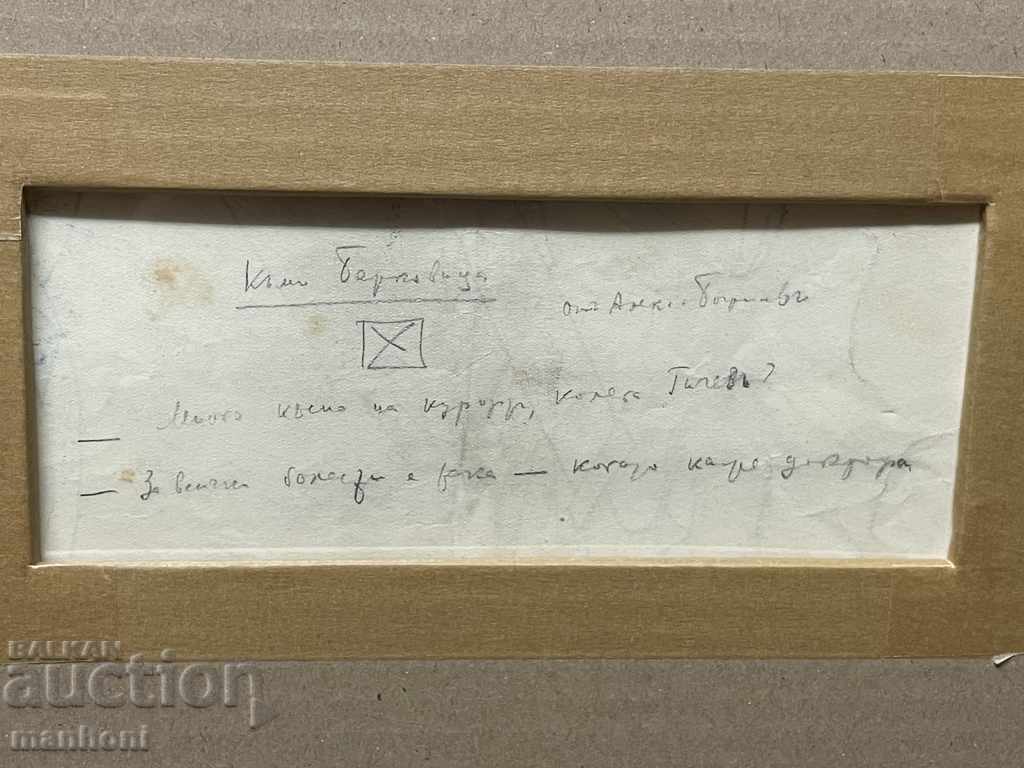 Към Берковица
отъ Алекс. Божиновъ
— Много късно на курорт, колега Гичевъ?
— За всички болести е така — когато каже доктора
BALKAN
auction
manhoni